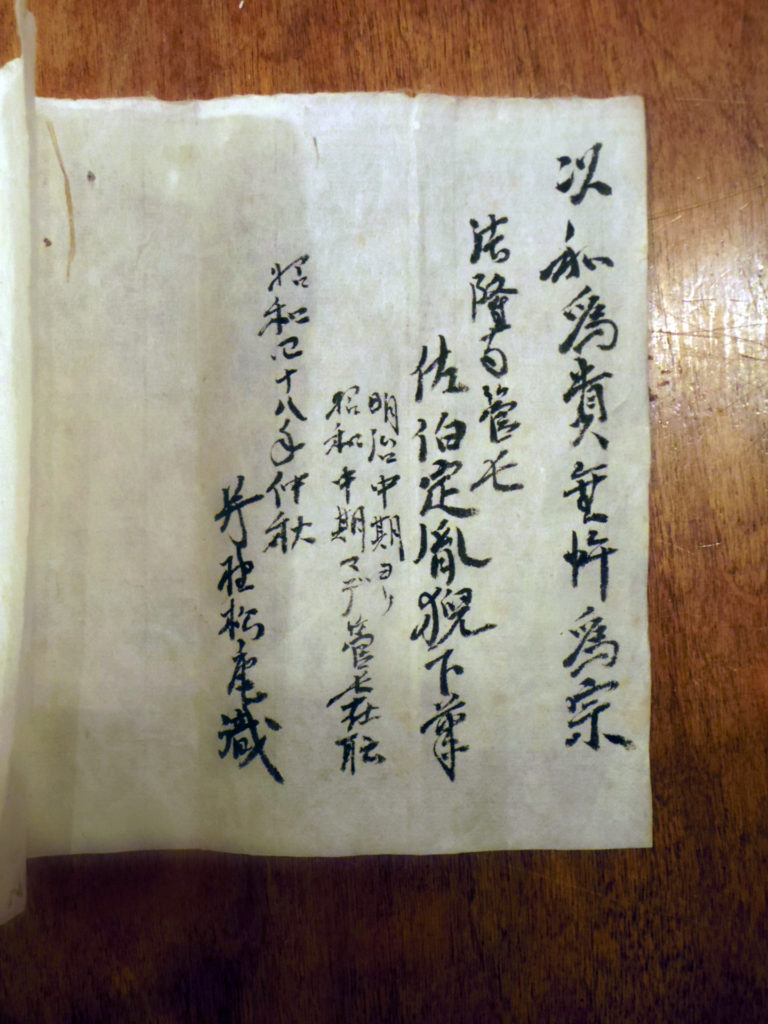 以和爲貴無忤爲宗
法隆寺管長
佐伯定胤猊下筆
明治中期ヨリ
昭和中期マデ管長在職
昭和四十八年仲秋
松庵識